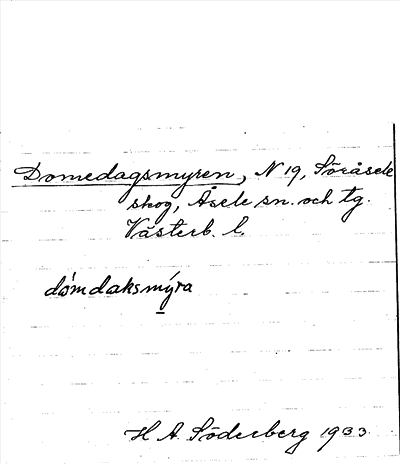 Domedagsmyren, N 19, Söråsele
skog, Åsele sn. och tg.
Västerb. l.
dómdaksmýra
H A Söderberg 1933